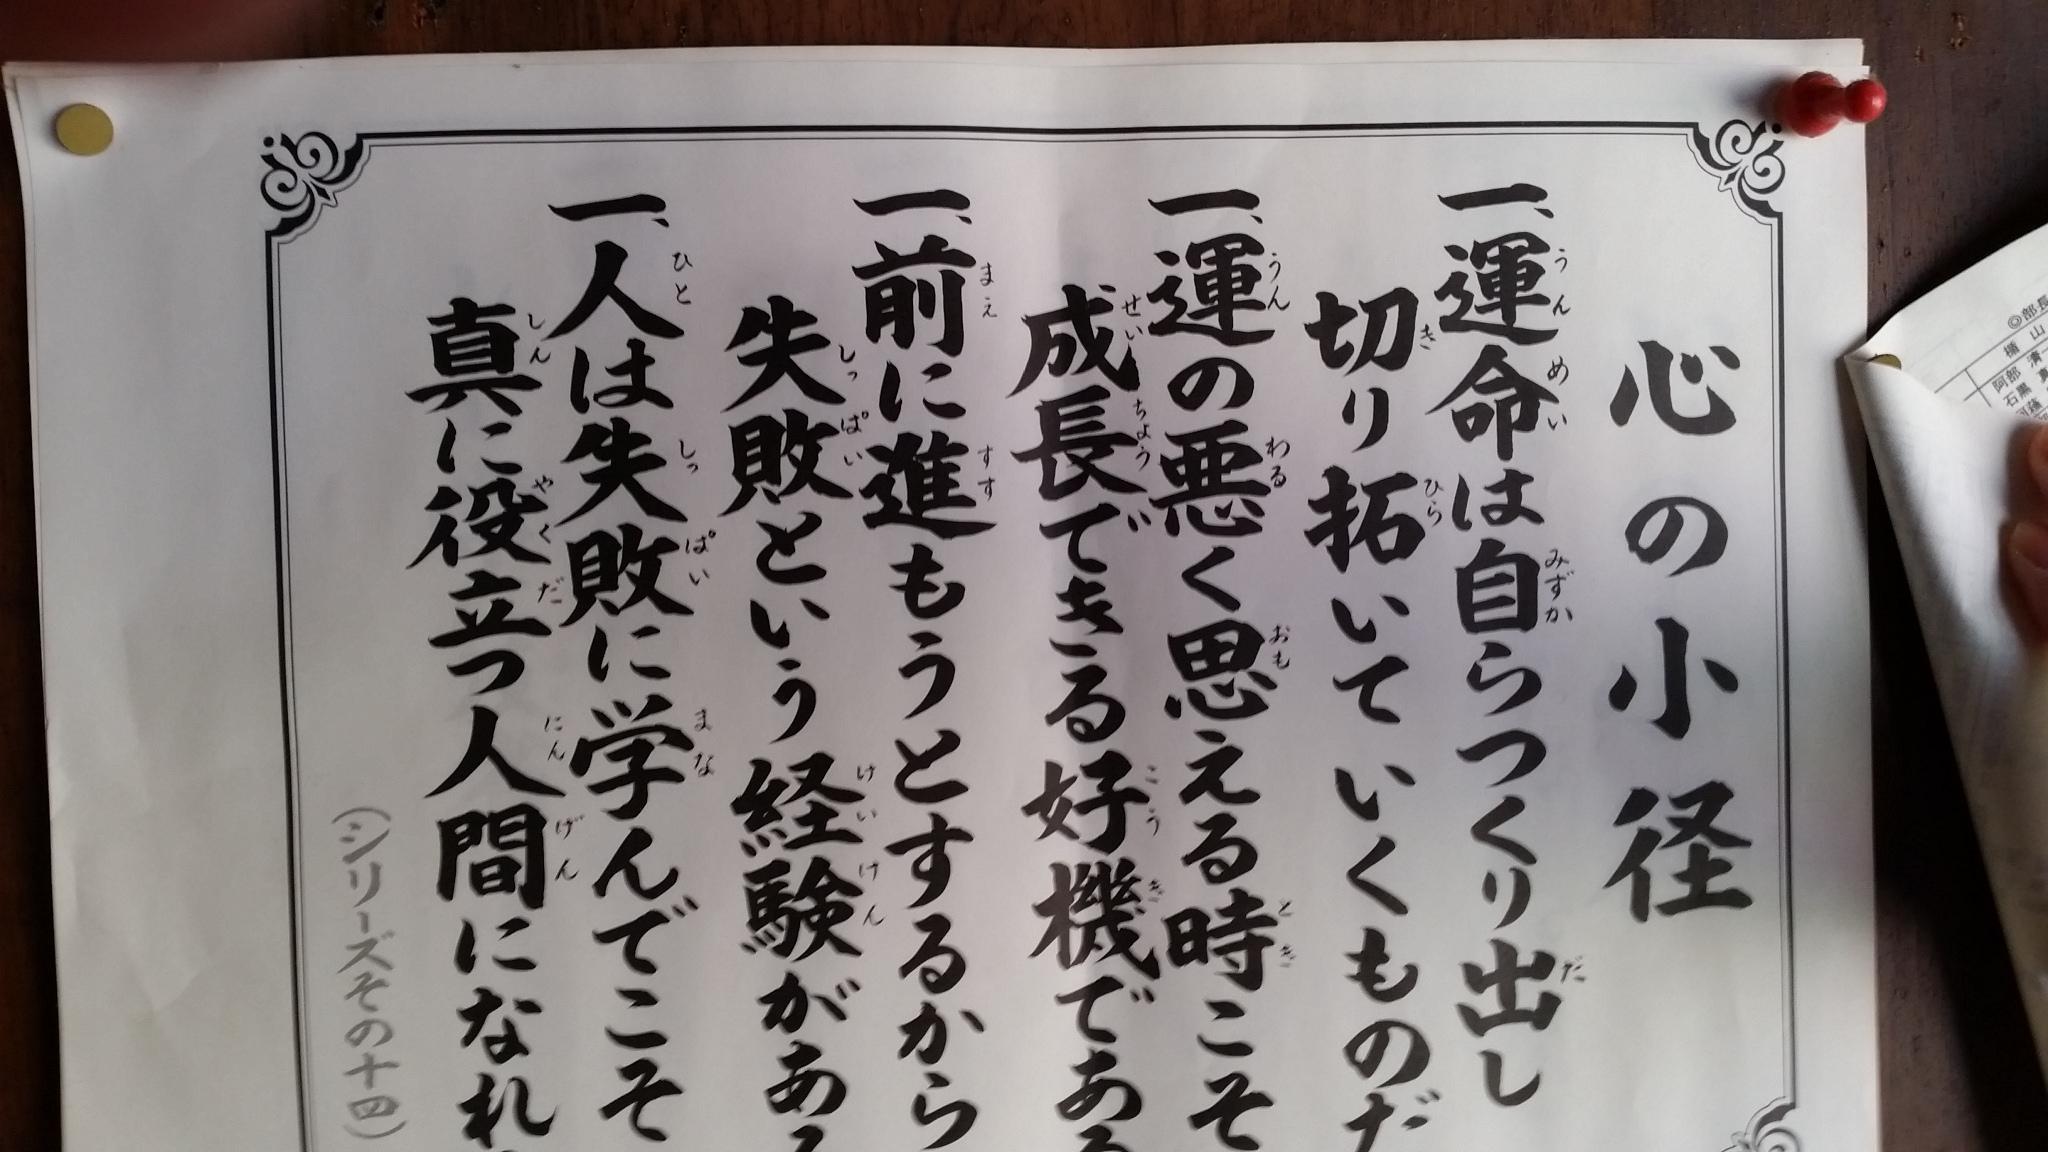 心の小径
一、運命は自らつくり出し
切り拓いていくものだ
一、運の悪く思える時こそ
成長できる好機である
一、前に進もうとするから
失敗という経験がある
一、人は失敗に学んでこそ
真に役立つ人間になれ
(シリーズその十四)
◎部長
楯 山
阿部 清一
石黒